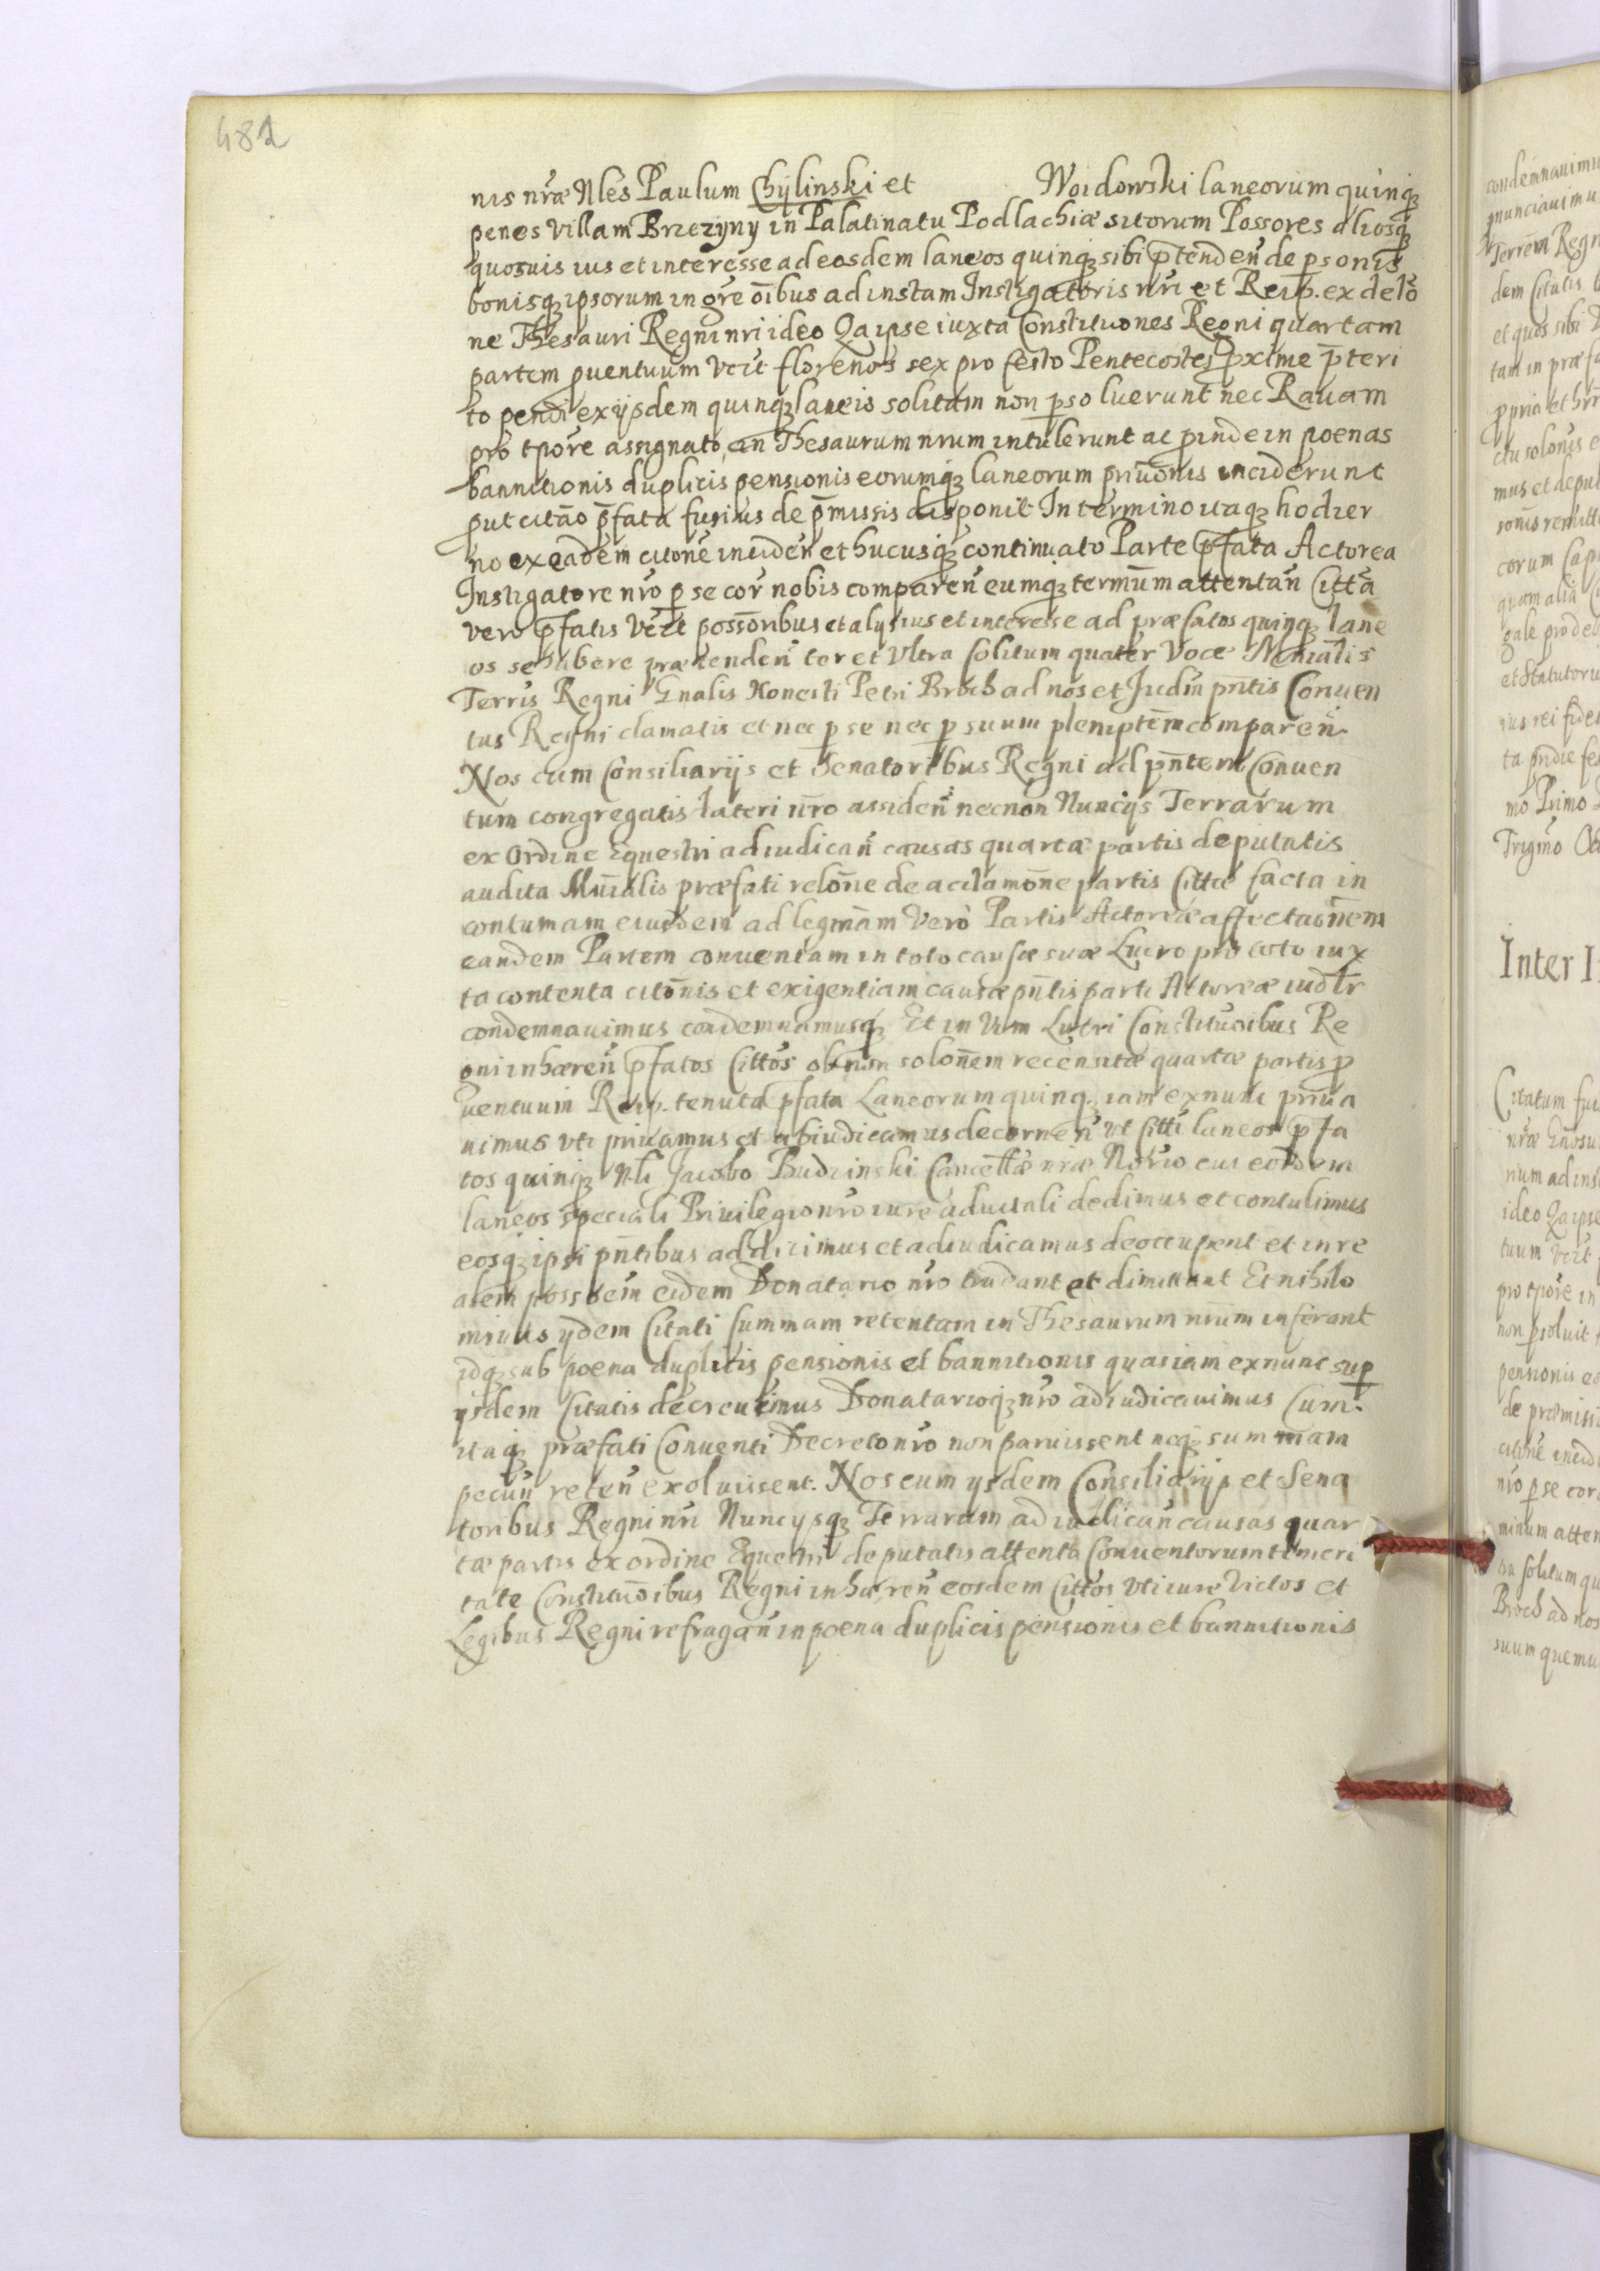 482
nis nr̃æ Nles Paulum Chylinski et Woidowski laneorum quinqꝫ
penes Villam Brzezyny in Palatinatu Podlachiæ sitorum Possores aliosqꝫ
quosuis ius et interesse ad eosdem laneos quinqꝫ sibi p̃tenden̄ de psonis
bonisqꝫ ipsorum in gr̃e oĩbus ad instam Instigatoris nr̃i et Reip. ex delõ
ne Thesauri Regni nri ideo Qa ipse iuxta Constituones Regni quartam
partem puentuum vc̃it florenos sex pro festo Pentecostes pxime p̃teri
to pendi ex ijsdem quinqꝫ laneis solitam non pso luerunt nec Rauam
pro tpore assignato in Thesaurum nrum intulerunt ac pinde in poenas
bannitionis duplicis pensionis eorumqꝫ laneorum priuõnis inciderunt
put citão p̃fata fusius de p̃missis disponit In termino itaqꝫ hodier
no ex eadem citone inciden̄ et hucusqꝫ continuato Parte p̃fata Actorea
Instigatore nr̃o p se cor̃ nobis comparen̄ eumqꝫ term̃um attentan̄ Citta
vero p̃fatis vc̃it possoribus et alys ius et interesse ad præfatos quinqꝫ lane
os se habere prætenden̄ ter et Vltra solitum quater Voce Ministerialis
Terris Regni Gnalis Honesti Petri Broch ad nos et Judm̃ pñtis Conuen
tus Regni clamatis et nec p se nec p suum plenipten̄ comparen̄
Nos cum Consiliarijs et Senatoribus Regni ad pñtem Conuen
tum congregatis lateri nr̃o assiden̄ necnon Nuncijs Terrarum
ex Ordine Equestri ad iudican̄ causas quartæ partis deputatis
audita Mñialis præfati relõne de acclamõne partis Cittæ facta in
contumam eiusdem ad legimam Vero Partis Actoreæ affectaõnem
eandem Partem conuentam in toto causæ suæ Lucro pro toto iux
ta contenta citõnis et exigentiam causæ pñtis parti Actoreæ iudlr
condemnauimus condemnamusqꝫ Et in Vim Lucri Constituõibus Re
gni inhæren̄ p̃fatos Cittos ob non solonem recensitæ quartæ partis p
uentuum Reip. tenuta p̃fata Laneorum quinqꝫ iam ex nunc priua
uimus vti priuamus et abiudicamus decernen̄ vt Citti laneos p̃fa
tos quinqꝫ Nli Jacobo Budzinski Cancellæ nr̃æ Not̃rio cui eosdem
laneos speciali Priuilegio nr̃o iure aduitali dedimus et contulimus
eosqꝫ ipsi pñtibus addicimus et adiudicamus deoccupent et in re
alem possoem eidem Donatario nr̃o tradant et dimittant Et nihilo
minus ydem Citati summam retentam in Thesaurum nrum inferant
idqꝫ sub poena duplicis pensionis et bannitionis quas iam ex nunc sup
ysdem Citatis decreuimus Donatarioqꝫ nr̃o adiudicauimus Cum
itaqꝫ præfati Conuenti Decreto nr̃o non paruissent neqꝫ summam
pecun̄ reten̄ exoluissent. Nos cum ysdem Consiliarijs et Sena
toribus Regni nri Nuncysqꝫ Terrarum ad iudican̄ causas quar
tæ partis ex ordine Equestri deputatis attenta Conuentorum temeri
tate Constituõibus Regni inhæren̄ eosdem Cittos vti iure Victos et
Legibus Regni refragan̄ in poena duplicis pensionis et bannitionis
Inter